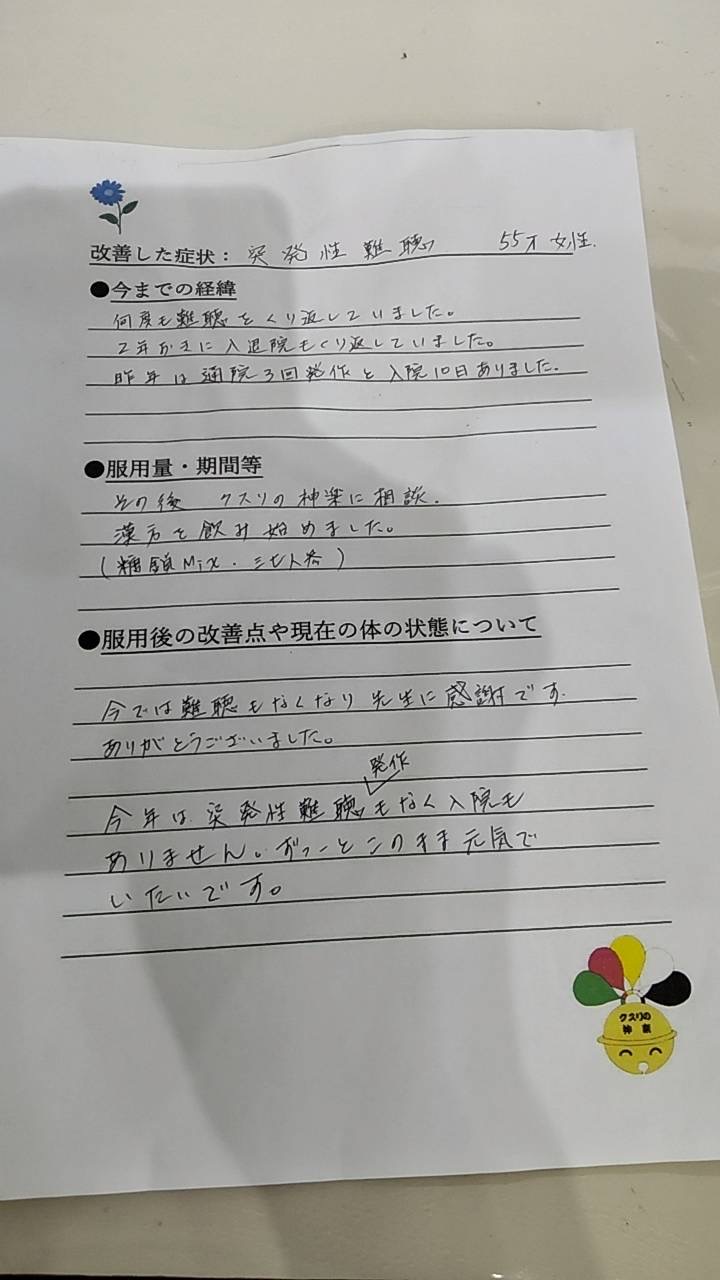 改善した症状：突発性難聴 55才女性.
●今までの経緯
何度も難聴をくり返していました。
2年おきに入退院もくり返していました。
昨年は通院3回発作と入院10日ありました.
●服用量・期間等
その後 クスリの神楽に相談.
漢方を飲み始めました。
(糖鎖Mix.三七人参)
●服用後の改善点や現在の体の状態について
今では難聴もなくなり先生に感謝です.
ありがとうございました。
発作
今年は.突発性難聴もなく入院も
ありません。ずっーとこのまま元気で
いたいです。
クスリの
神楽